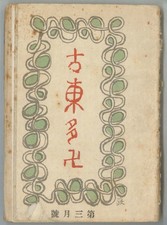 古東多卍
號月三第